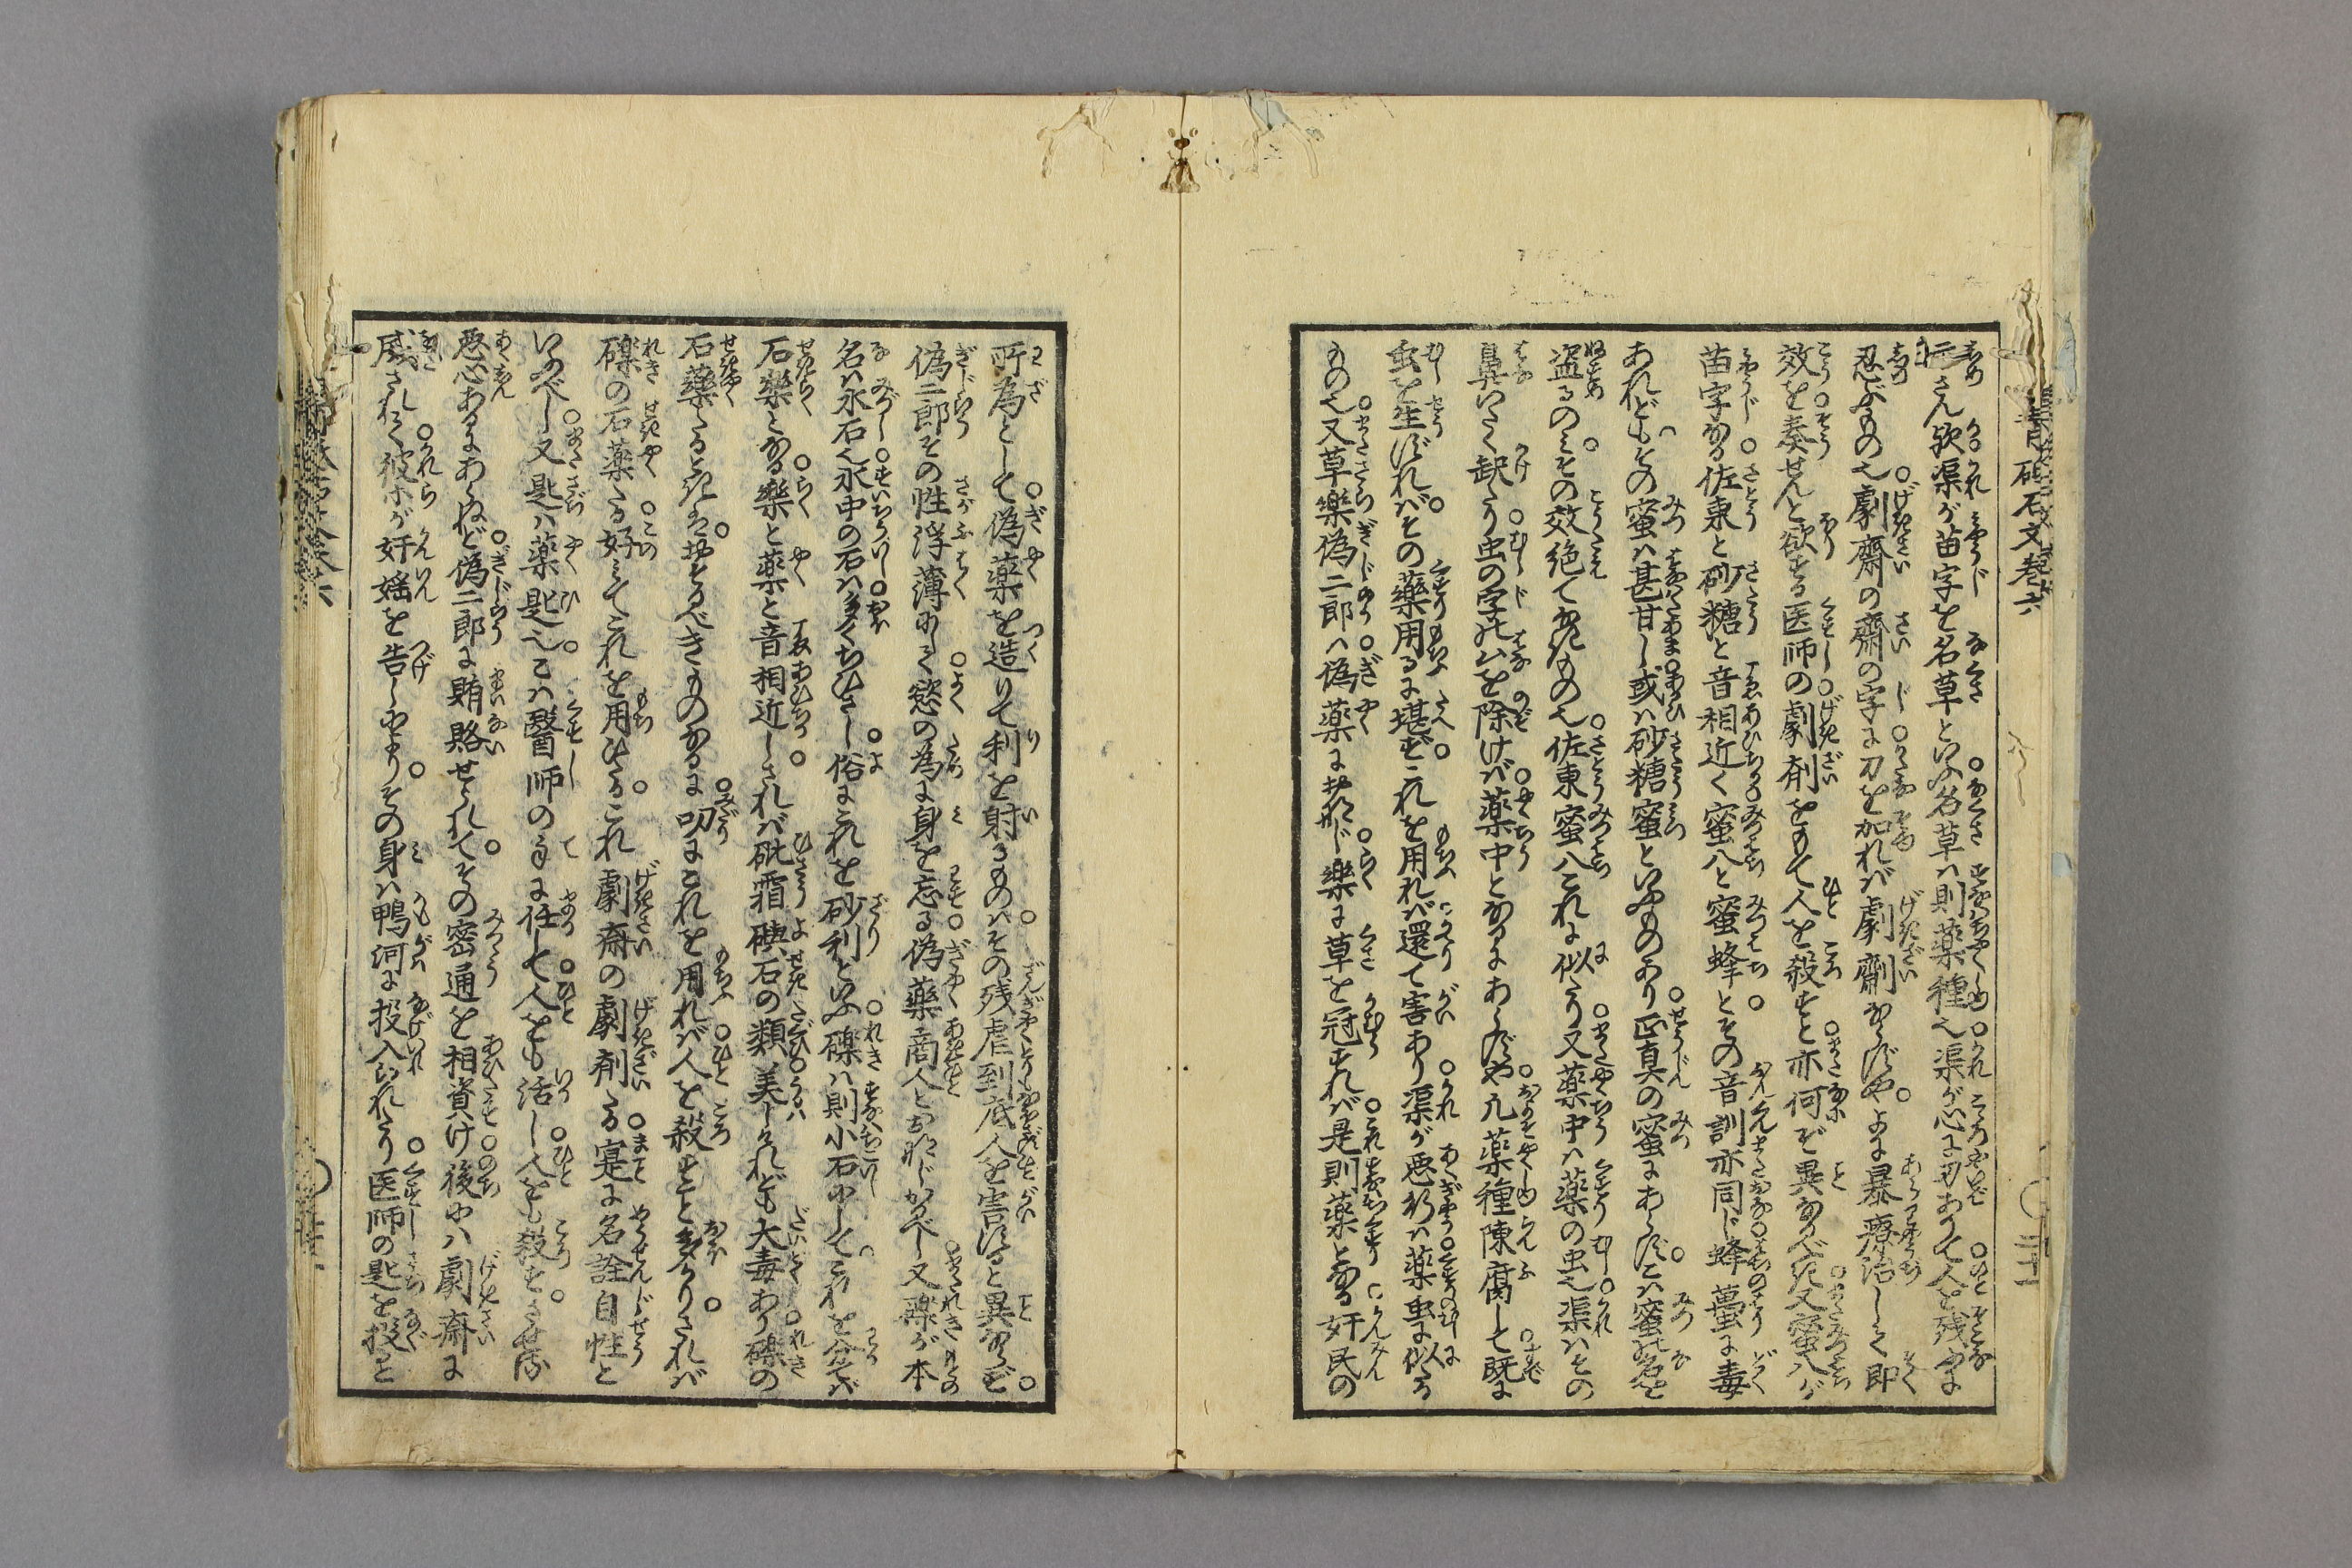 青砥石文巻六
示さん歟渠が苗字を名草といふ名草ハ則薬種也渠が心に刃ありて人を残ふに
忍ぶもの也劇齋の齋の字に刀を加れバ劇劑ならずやよに暴療治して即
效を奏せんと欲する医師の劇剤をもて人を殺すと亦何ぞ異なるべき又蜜八が
苗字なる佐東と砂糖と音相近く蜜八と蜜蜂とその音訓亦同じ蜂蠆に毒
あれどもその蜜ハ甚甘し或ハ砂糖蜜といふものあり正真の蜜にあらずこハ蜜の名を
盗るのミその效絶てなきもの也佐東蜜八これに似たり又薬中ハ薬の虫也渠ハその
鼻いたく缺たり虫の字の八を除けバ薬中となるにあらずや凡薬種陳腐して既に
虫を生ずれバその薬用るに堪ずこれを用れバ還て害あり渠が悪行ハ薬虫に似たる
もの也又草樂偽二郎ハ偽薬に故郎じ樂に草を冠すれバ是則薬となる奸民の
所為として偽薬を造りて利を射るものハその残虐到底人を害すると異ならず
偽二郎その性浮薄にして慾の為に身を忘る偽薬商人とおなじかるべし又礫が本
名ハ永石也永中の石ハ多くちひさし俗にこれを砂利といふ礫ハ則小石にしてこれを分てバ
石樂となる樂と薬と音相近しされバ砒霜礜石の類美しけれども大毒あり礫の
石薬たるときハおそるべきものなるに叨にこれを用れバ人を殺すこと多かりされバ
礫の石薬たる好ミてこれを用ひたるこれ劇齋の劇剤たる寔に名詮自性と
いふべし又匙ハ薬匙也こハ醫師の手に任して人をも活し人をも殺すさせる
悪心あるにあらねど偽二郎に賄賂せられてその密通を相資け後にハ劇齋に
威されて彼等が奸婬を告しにより その身ハ鴨河に投入られたり医師の匙を投ると